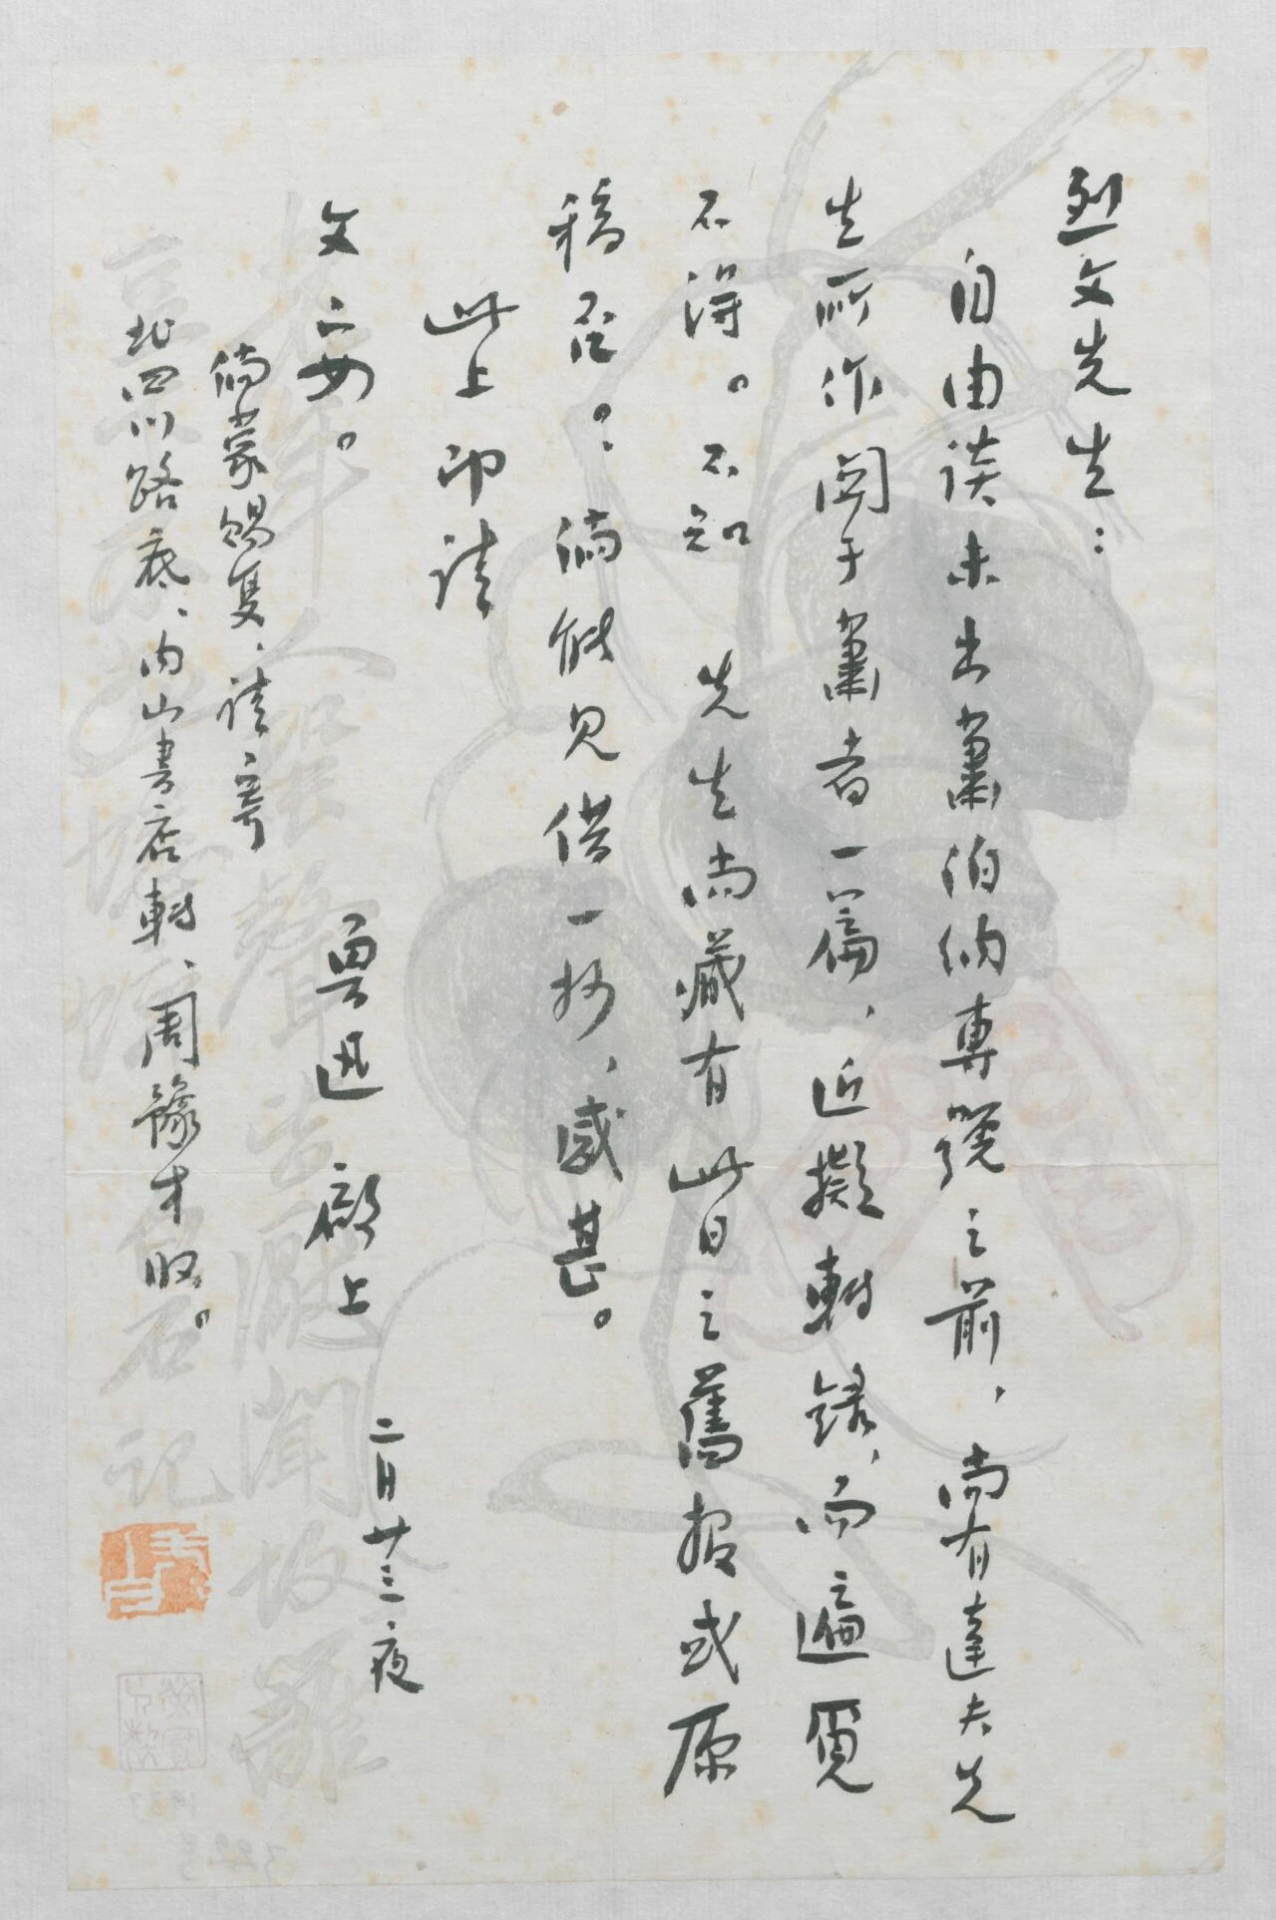 烈文先生：
自由談未出蕭伯納專號之前，尚有達夫先
生所作關于蕭者一篇，近擬轉錄，而遍覓
不得。不知　先生尚藏有此日之舊报或原
稿否。：倘能見借一抄，感甚。
此上即請
文安。
魯迅 啟上　二月廿三夜
倘蒙賜复，請寄
北四川路底、內山書店轉、周豫才收。